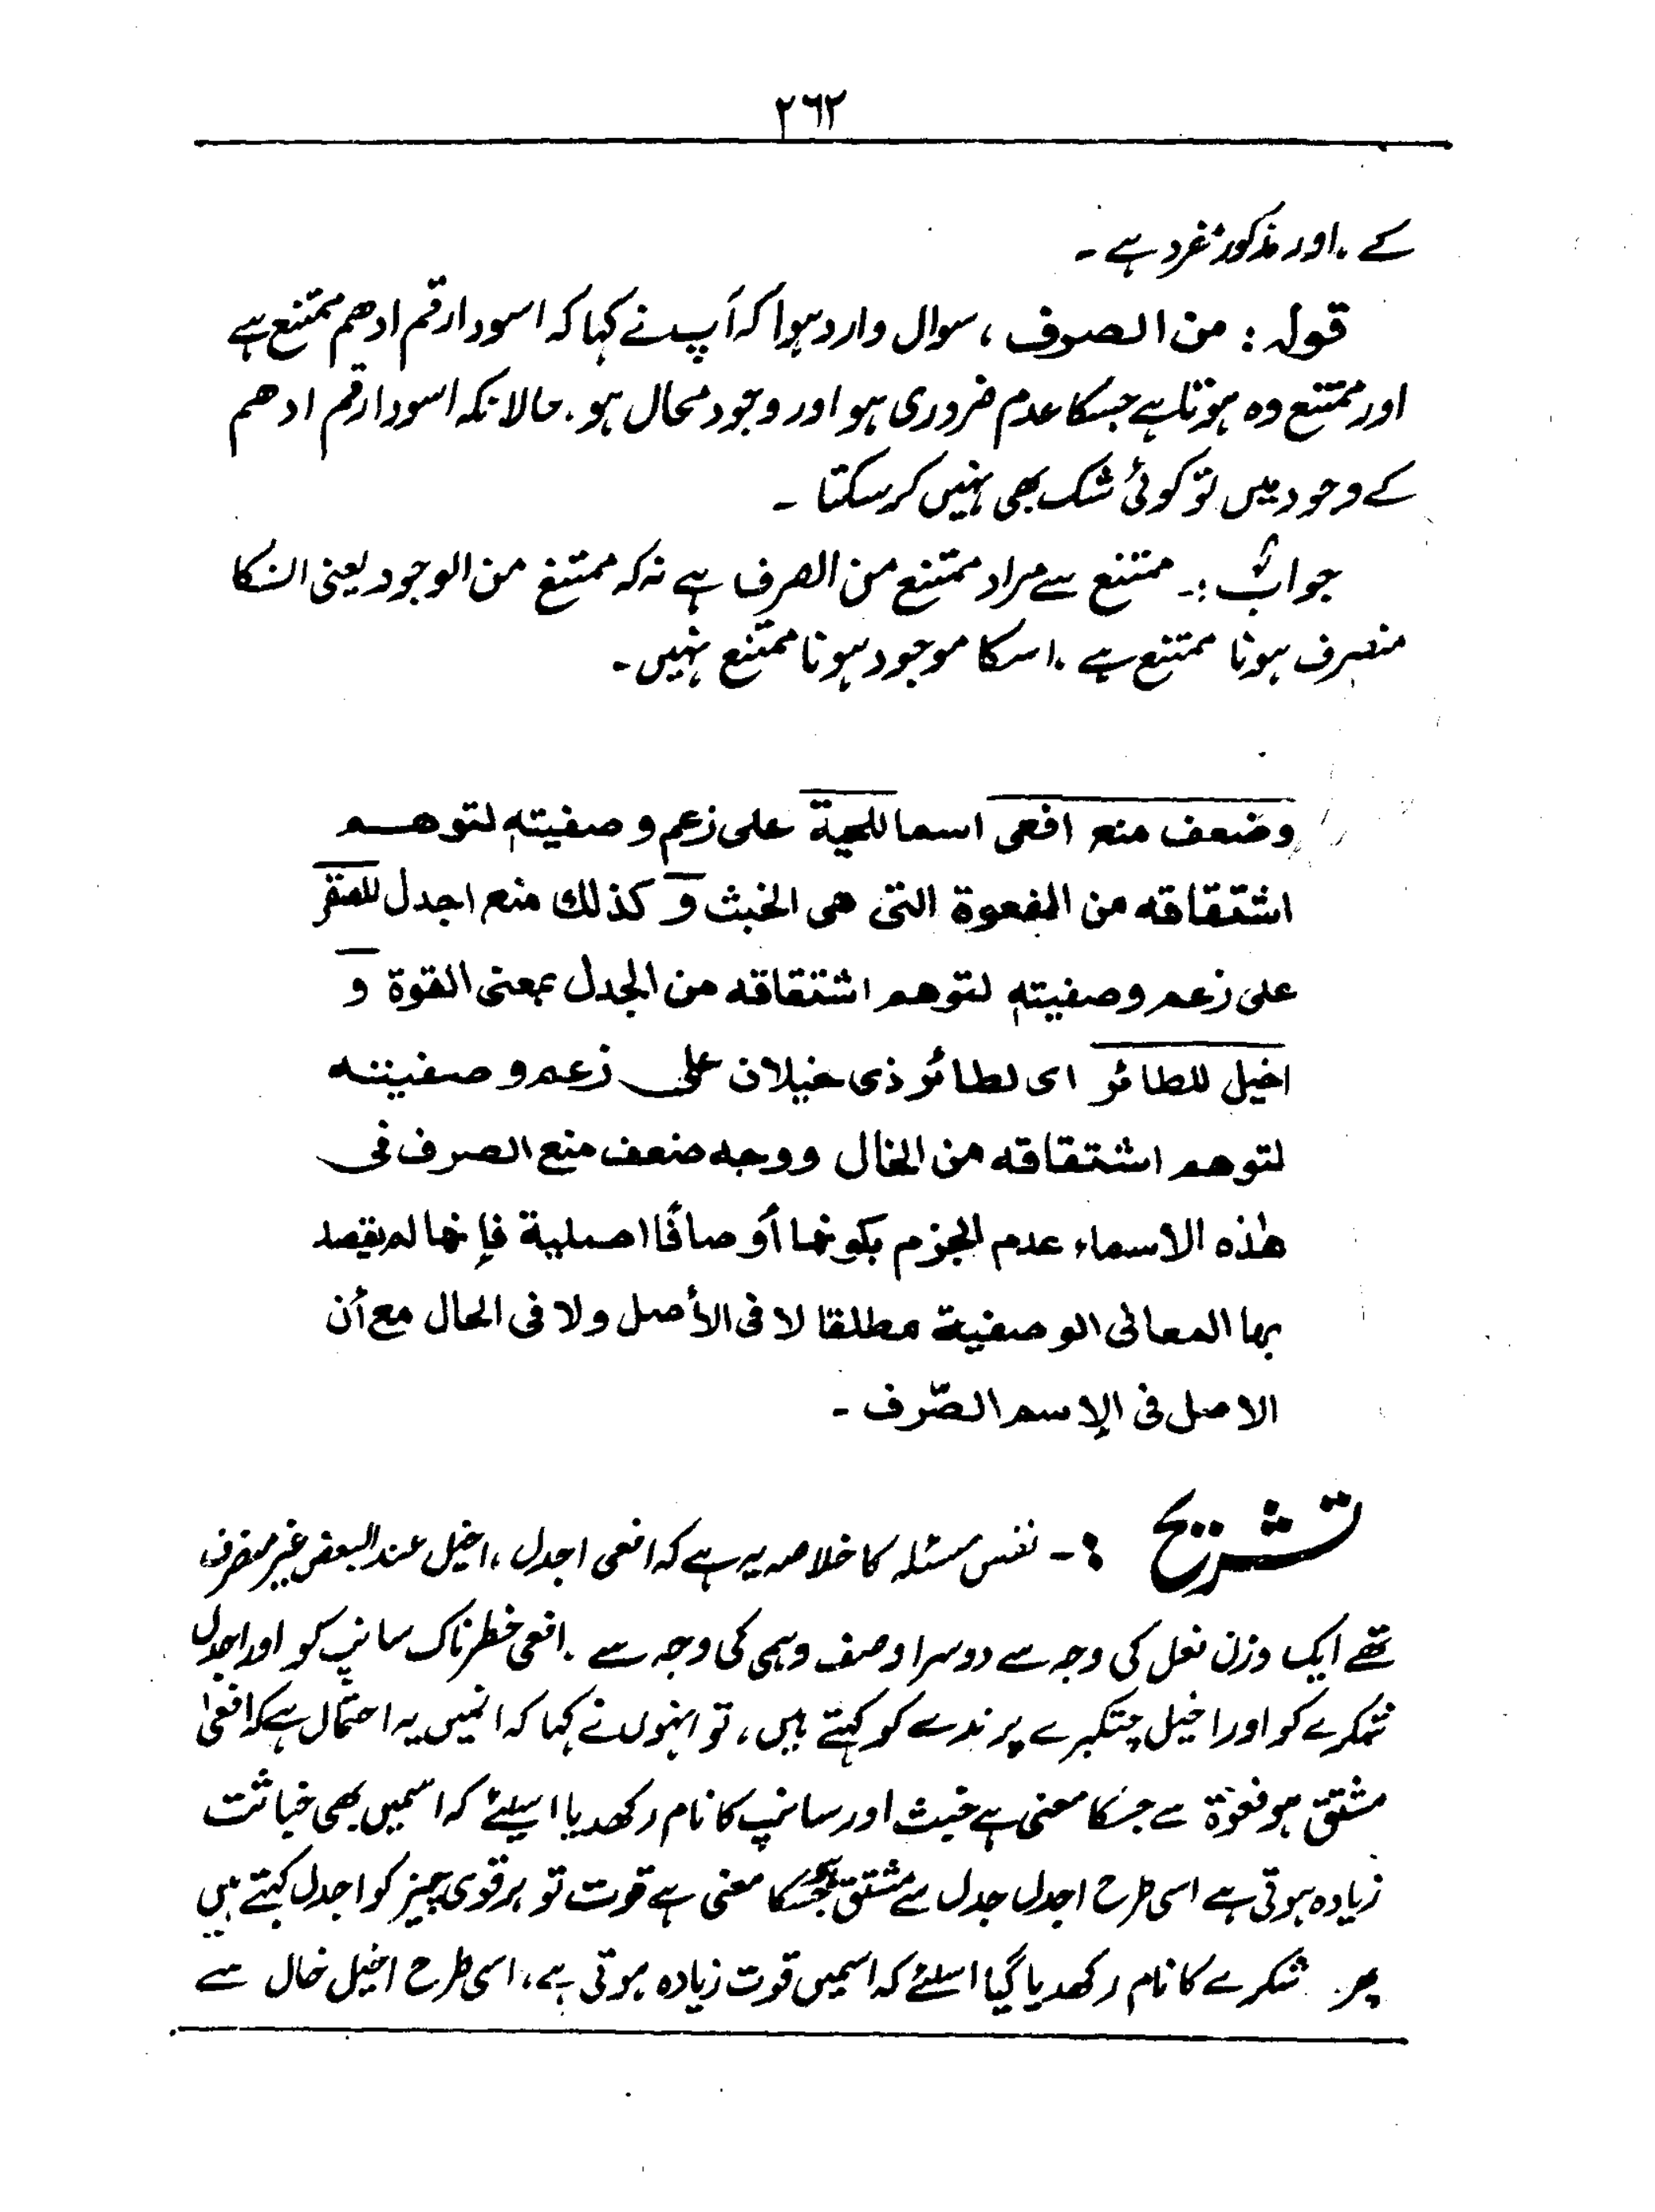 ۲٦۲
کے ۔ اور مذکور مفرد ہے ۔
قولہ : من الصرف ، سوال وارد ہوا کہ آپ نے کہا کہ اسود ارقم ادھم ممتنع ہے
اور ممتنع وہ ہوتا ہے جسکا عدم ضروری ہو اور وجود محال ہو ۔ حالانکہ اسود ارقم ادھم
کے وجود میں تو کوئی شک بھی نہیں کرسکتا ۔
جواب :۔ ممتنع سے مراد ممتنع من الصرف ہے نہ کہ ممتنع من الوجود یعنی انکا
منصرف ہونا ممتنع ہے ۔ اسکا موجود ہونا ممتنع نہیں ۔
وضعف منع افعی اسما للحیة علی زعم وصفیته لتوهم
اشتقاقه من الفعوة التی هی الخبث و کذلك منع اجدل للصقر
علی زعم وصفیته لتوهم اشتقاقه من الجدل بمعنی القوة و
اخیل للطائر ای لطائر ذی خیلان علی زعم وصفیته
لتوهم اشتقاقه من الخال ووجه ضعف منع الصرف فی
هذه الاسماء عدم الجزم بکونها أوصافًا اصلیة فإنها لم یقصد
بها المعانی الوصفیة مطلقا لا فی الأصل ولا فی الحال مع أن
الاصل فی الإسم الصّرف ۔
تشریح :۔ نفس مسئلہ کا خلاصہ یہ ہے کہ افعی اجدل ، اخیل عند البعض غیر منصرف
تھے ایک وزن فعل کی وجہ سے دوسرا وصف وہمی کی وجہ سے ۔ افعی خطرناک سانپ کو اور اجدل
شکرے کو اور اخیل چتکبرے پرندے کو کہتے ہیں ، تو انہوں نے کہا کہ انمیں یہ احتمال ہے کہ افعیٰ
مشتق ہو فعوۃ سے جسکا معنی ہے خبث اور سانپ کا نام رکھدیا اسیلئے کہ اسمیں بھی خباثت
زیادہ ہوتی ہے اسی طرح اجدل جدل سے مشتق ہے جسکا معنی ہے قوت تو ہر قوی چیز کو اجدل کہتے ہیں
پھر شکرے کا نام رکھدیا گیا اسلئے کہ اسمیں قوت زیادہ ہوتی ہے ، اسی طرح اخیل خال سے